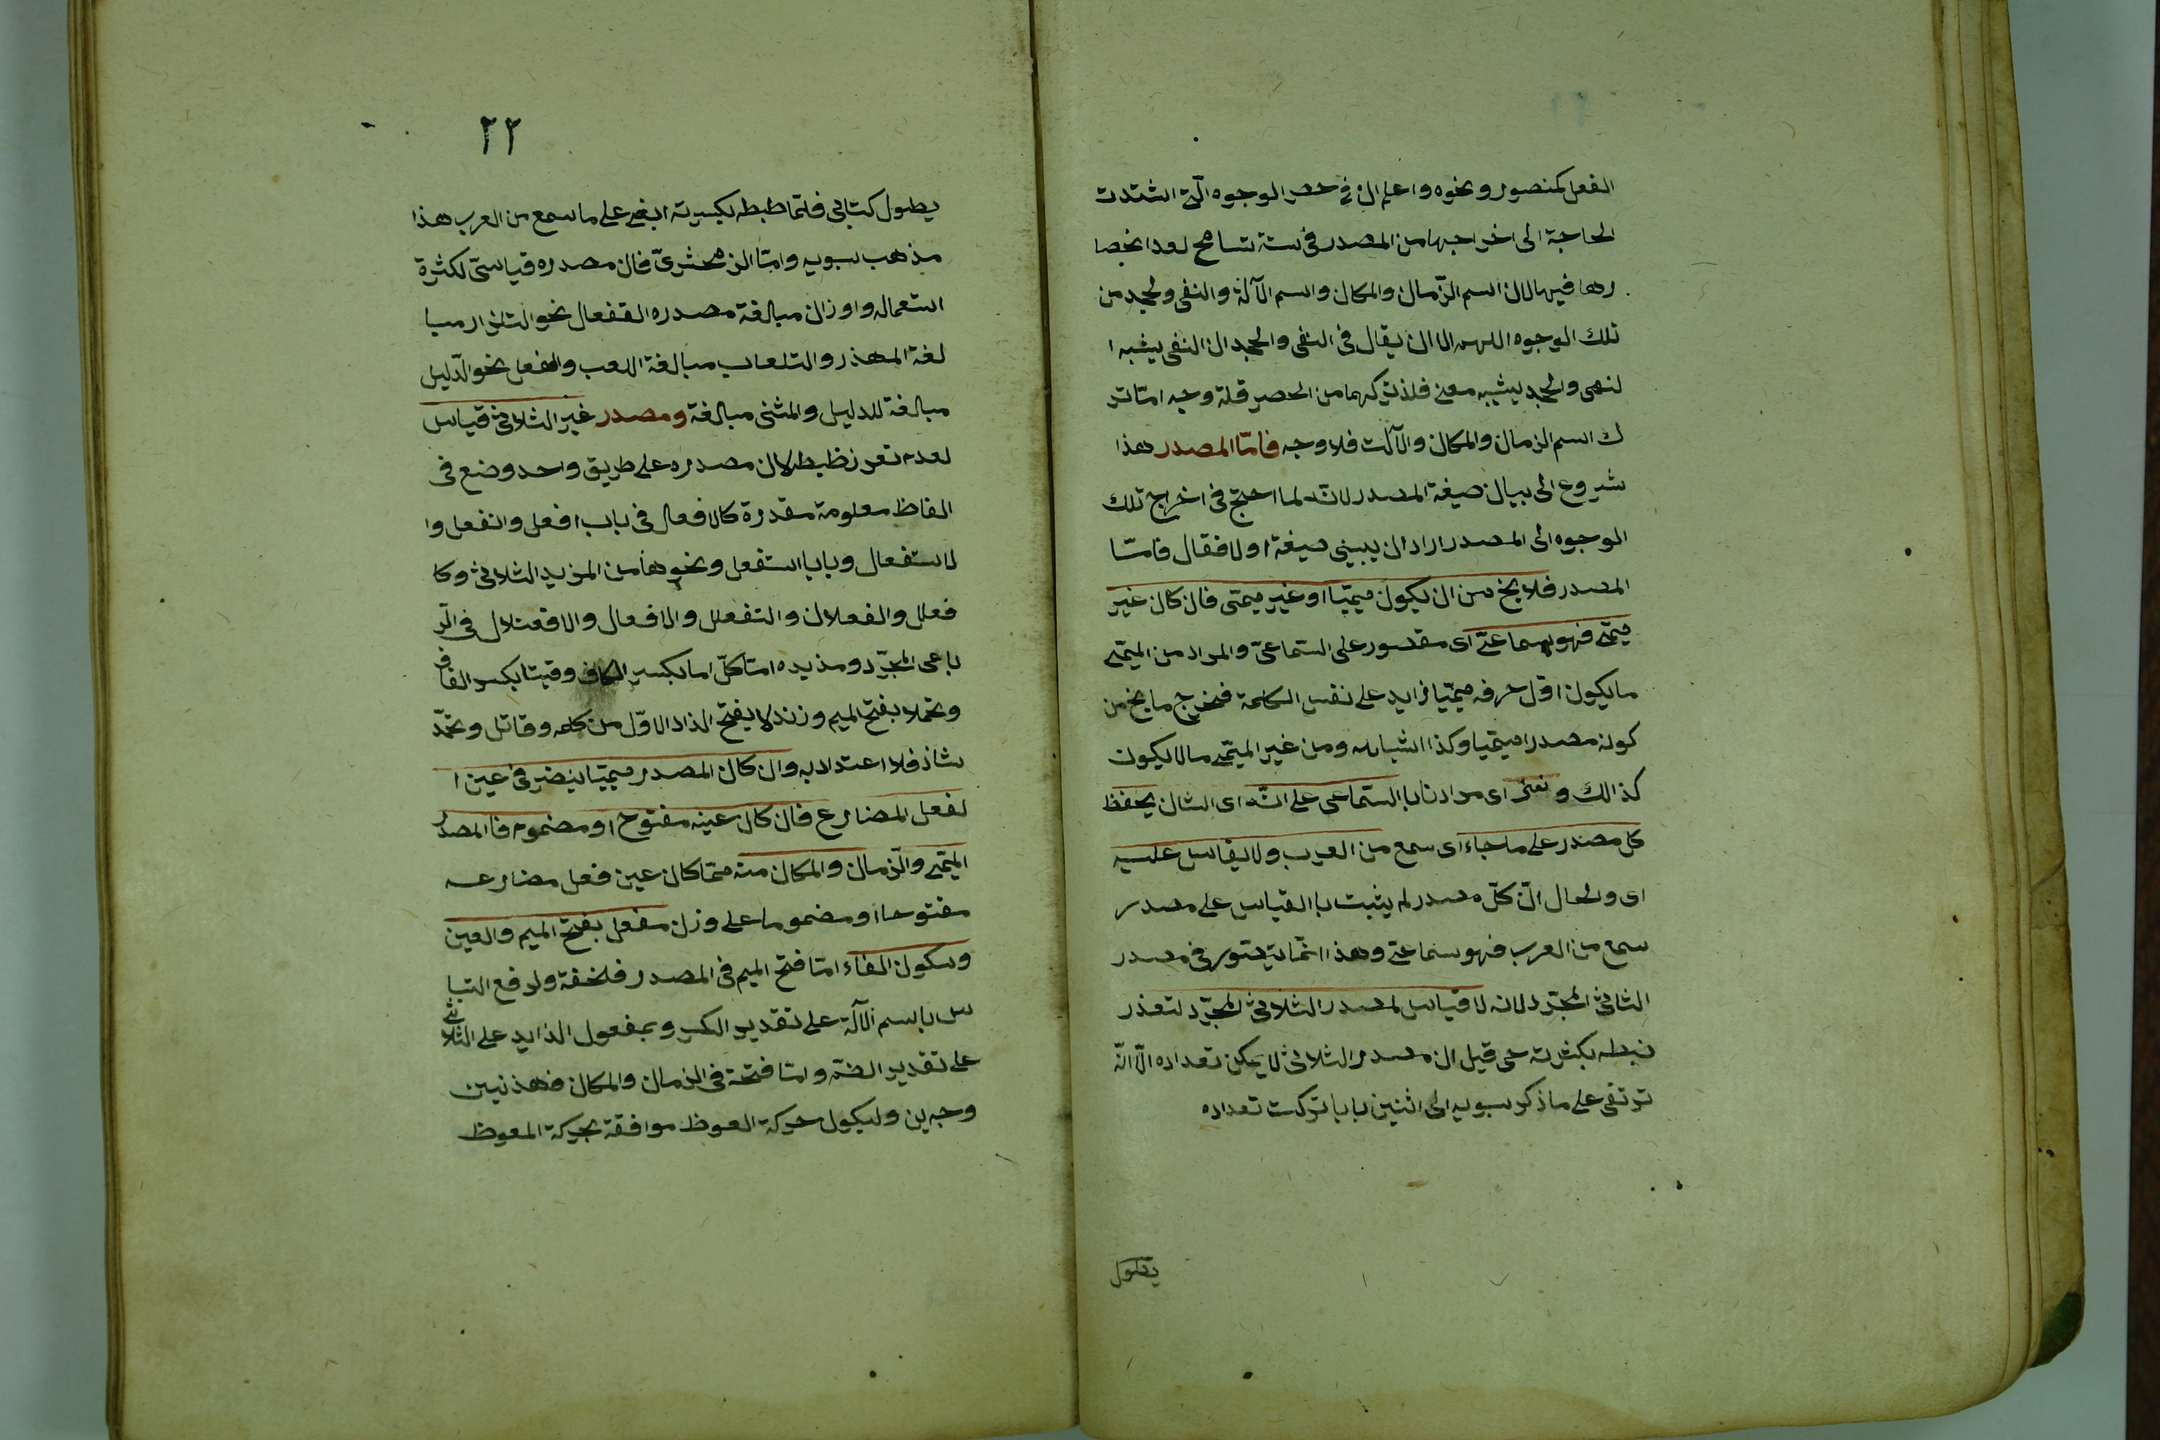 الفعل كمنصور ونحوه واعلم ان في حصر الوجوه الّتي اشتدت
الحاجة الى اخراجها من المصدر فى ستة تسامح لعدا نحصا
رها فيها لان اسم الزّمان والمكان واسم الآلة والنفى والجحد من
تلك الوجوه اللهم الا ان يقال فى النفى والجحد ان النفى يشبه ا
لنهى والجحد يشبه معنى فلذ تركهما من الحصر قلة وجه امّا تر
ك اسم الزمان والمكان والآلت فلا وجه فامّا المصدر هذا
شروع الى بيان صيغة المصدر لانّه لما احتج فى اخراج تلك
الموجوه الى المصدر اراد ان يبيني صيغة اولا فقال فامّا
المصدر فلا يخ من ان يكون ميميّا او غير ميمّى فان كان غير
ميمّى فهو سماعىّ اى مقصور على السّماعىّ والمراد من الميمّى
ما يكون اوّل حرفه ميمّيا زايد على نفس الكلمة فخرج ما يخ من
كونه مصدرا ميمّيا وكذا اشباهه ومن غير الميمّى ما لا يكون
كذالك و نعنى اى مرادنا باالسّماعى على انّه اى الشان يحفظ
كل مصدر على ما جاء اى سمع من العرب ولا يقاس عليه
اى والحال انّ كلّ مصدر لم يثبت باالقياس على مصدر
سمع من العرب فهو سماعىّ وهذا انّما يتصّور فى مصدر
الثاثىّ المجرّد لانه لا قياس لمصدر الثلاثىّ المجرّد لتعذر
ضبطه بكثرته حى قيل ان مصدر الثلاثىّ لا يمكن تعداده الّا انّه
ترتقى على ما ذكر سبويه الى اثنين بابا تركت تعداده
يطول
٢٢
يطول كتابى فلمّا ظبطه بكسرته ابقى على ما سمع من العرب هذا
مذهب سبويه وامّا الزمحشرىّ فان مصدره قياسىّ لكثرة
استعماله واوزان مبالغة مصدره التفعال نحو التلزار مبا
لغة المهذر والتلعاب مبالغة اللعب والفعل نحو الدّليل
مبالغة للدليل والمثنى مبالغة ومصدر غير الثلاثىّ قياس
لعدم تعرز ظبطه لان مصدره على طريق واحد وضع فى
الفاظ معلومة مقدرة كالافعال فى باب افعل وانفعل وا
لاستفعال وبابا استفعل ونحوها من المزيد الثلاثىّ وكا
فعلل والفعلان والتفعلل والافعال والاقعتلال فى الرّ
باعى المجرّد ومذيده امّا كلّ اما بكسر الكاف وقيتا بكسر القاف
وتحملا بفتح الميم وزندلا يفتح الذاد الاوّل من كلمه وقاتل وتحمّد
شاذ فلا اعتداد به وان كان المصدر ميميّا ينضر فى عين ا
لفعل المضارع فان كان عينه مفتوح او مضموم فا المصدر
الميمّى والزّمان والمكان منه ممّا كان عين فعل مضارعه
مفتوحا او مضموما على وزن مفعل بفتح الميم والعين
وسكون الفاء امّا فتح الميم فى المصدر فلخفة ولدفع التبا
س باسم الآلة على تقدير الكسر وبمفعول الذايد على الثلاثىّ
على تقدير الضّم وامّا فتحة فى الزمان والمكان فهذ نيين
وجهين وليكول حركة العوظ موافقة بحركة المعوظ